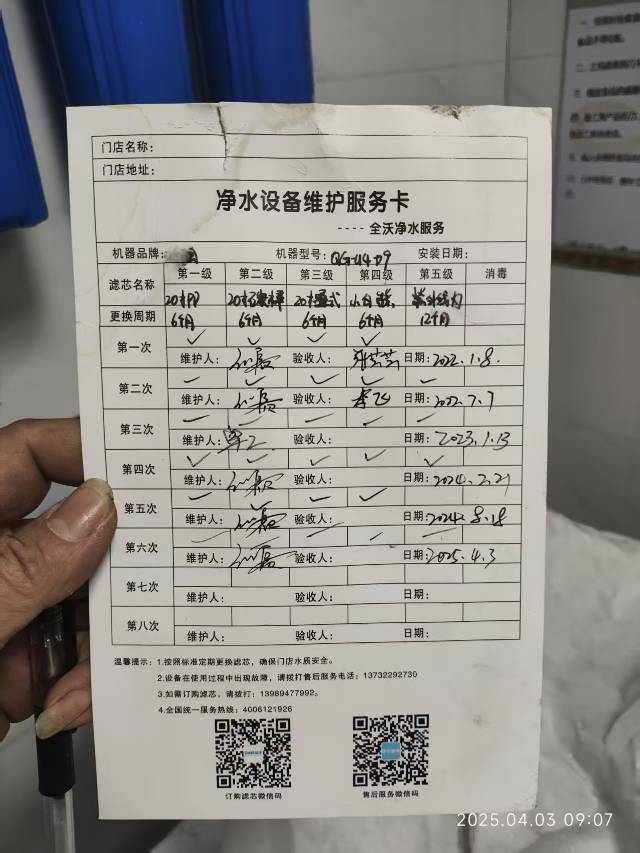 门店名称:
门店地址:
净水设备维护服务卡
---- 全沃净水服务
机器品牌: 机器型号: QG-U4-09 安装日期:
滤芯名称 第一级 第二级 第三级 第四级 第五级 消毒
20寸PP 紫外线灯
更换周期 6个月 6个月 6个月 6个月 12个月
第一次 ✓ ✓ ✓ ✓
维护人: 验收人: 日期: 2022.1.8.
第二次 – ✓ ✓ ✓ –
维护人: 验收人: 李飞 日期: 2022.7.7
第三次 – – – – –
维护人: 验收人: 日期: 2023.1.13
第四次 ✓ ✓ ✓ ✓ ✓
维护人: 验收人: 日期: 2024.2.21
第五次 – ✓ – ✓
维护人: 验收人: 日期: 2024.8.18
第六次 – – – – –
维护人: 验收人: 日期: 2025.4.3
第七次
维护人: 验收人: 日期:
第八次
维护人: 验收人: 日期:
温馨提示: 1.按照标准定期更换滤芯，确保门店水质安全。
2.设备在使用过程中出现故障，请拨打售后服务电话：13732292730
3.如需订购滤芯，请拨打：13989477992。
4.全国统一服务热线：4006121926
订购滤芯微信码 售后服务微信码
2025.04.03 09:07